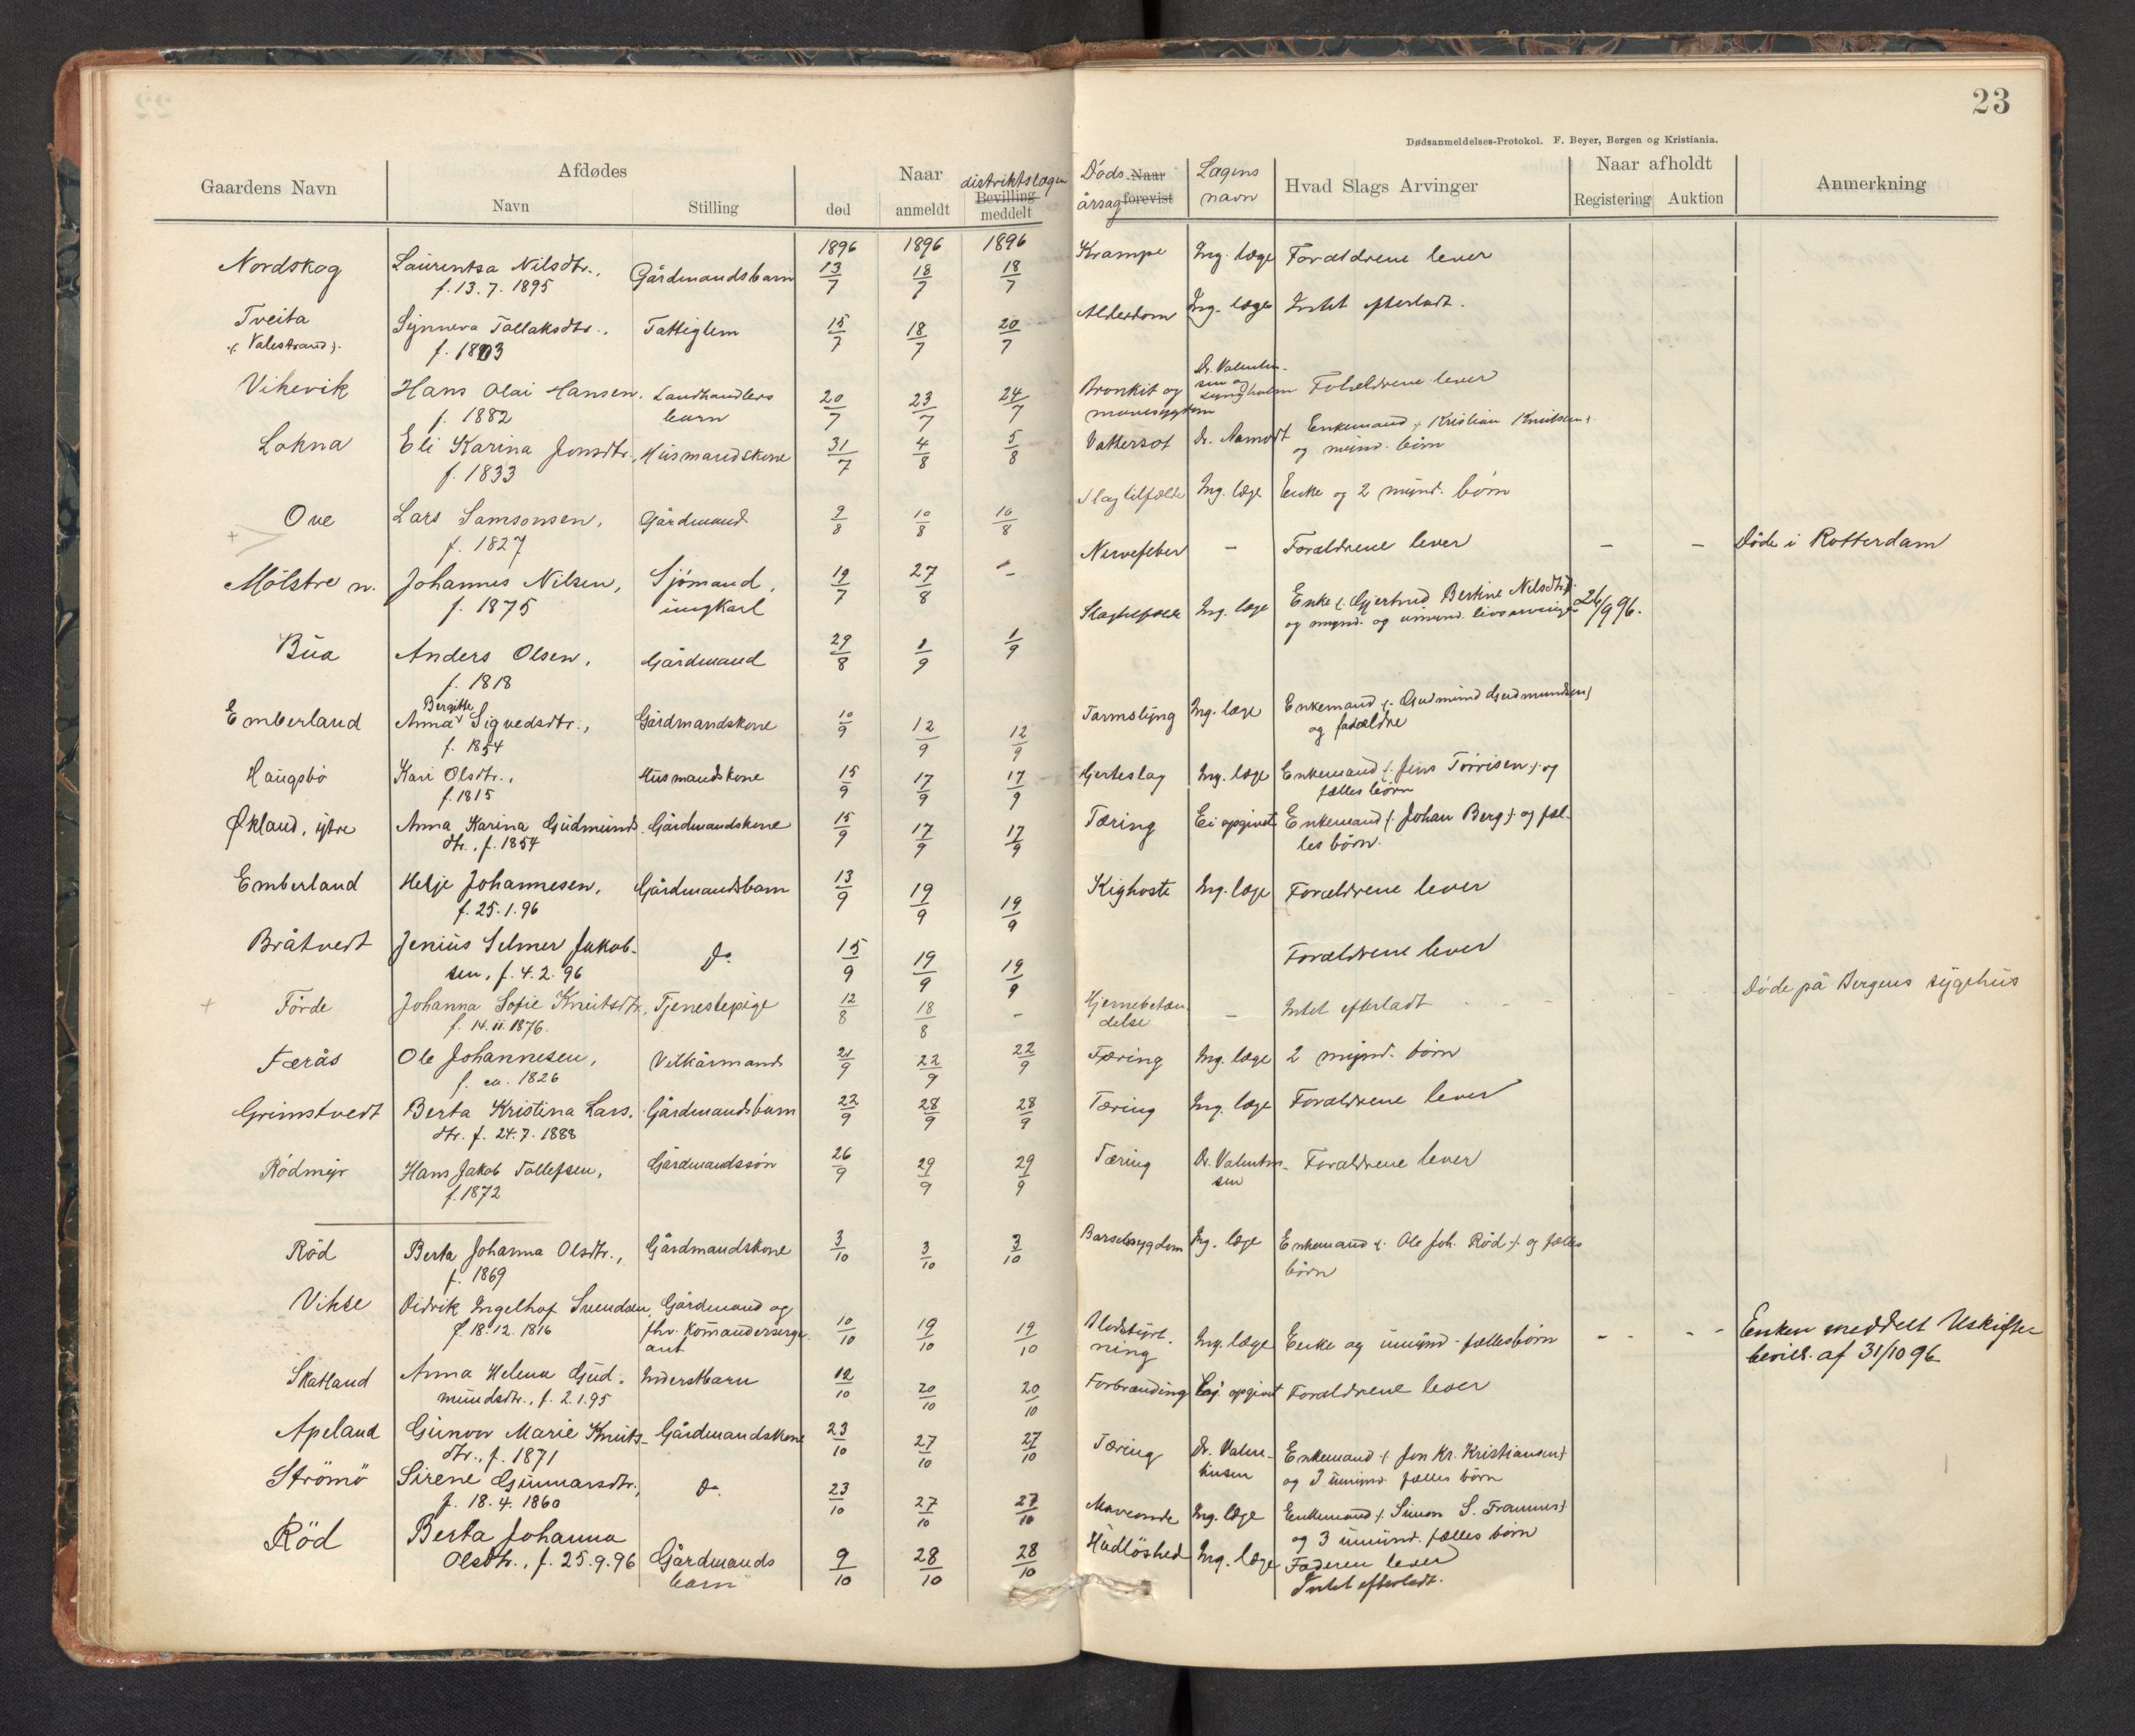 23
Dødsanmeldelses-Protokol. F. Beyer, Bergen og Kristiania.
Gaardens Navn
Afdødes
Navn
Stilling
Naar
død
anmeldt
distriktslægen
Bevilling
meddelt
Døds Naar
årsag forevist
Lægens
navn
Hvad Slags Arvinger
Naar afholdt
Registering Auktion
Anmerkning
1896 1896 1896
Nordskog Laurentsa Nilsdtr., Gårdmandsbarn 13/7 18/7 18/7 Krampe Ing. læge Forældrene lever
f. 13.7.1895
Tveita Synneva Tollaksdtr., Fattiglem 15/7 18/7 20/7 Alderdom Ing. læge Intet efterladt.
(: Valestrand :) f. 1803
Vikevik Hans Olai Hansen, Landhandlers 20/7 23/7 24/7 Bronkit og Dr. Valentin- Forældrene lever
f. 1882 barn mavesygdom sen og Lyngholm
Lokna Eli Karina Jonsdtr., Husmandskone 31/7 4/8 5/8 Vattersot Dr. Aamodt Enkemand (: Kristian Knutsen :)
f. 1833 og mynd. børn
Ove Lars Samsonsen, Gårdmand 9/8 10/8 10/8 Slagtilfælde Ing. læge Enke og 2 mynd. børn
f. 1827
Mölstre n. Johannes Nilsen, Sjómand, 19/7 27/8 - Nervefeber - Forældrene lever - - Døde i Rotterdam
f. 1875 ungkarl
Bua Anders Olsen, Gårdmand 29/8 1/9 1/9 Slagtilfælde Ing. læge Enke (: Gjertrud Bertine Nilsdtr. :) 26/9 96.
f. 1818 og mynd. og umynd. livsarvinger
Emberland Anna Bergitte Sigvedsdtr., Gårdmandskone 10/9 12/9 12/9 Tarmslyng Ing. læge Enkemand (: Gudmund Gudmundsen :)
f. 1854 og forældre
Haugsbö Kari Olsdtr., Husmandskone 15/9 17/9 17/9 Hjerteslag Ing. læge Enkemand (: Jens Torrisen :) og
f. 1815 fælles børn
Økland, ytre Anna Karina Gudmunds- Gårdmandskone 15/9 17/9 17/9 Tæring Ei opgivet Enkemand (: Johan Berg :) og fæl-
dtr., f. 1854 les børn.
Emberland Helje Johannesen, Gårdmandsbarn 13/9 19/9 19/9 Kighoste Ing. læge Forældrene lever
f. 25.1.96
Bråtvedt Jenius Selmer Jakob- Do 15/9 19/9 19/9 Forældrene lever
sen, f. 4.2.96
Förde Johanna Sofie Knutsdtr., Tjenestepige 12/8 18/8 - Hjernebetæn- - Intet efterladt - - Døde på Bergens sygehus
f. 14.11.1876. delse
Færås Ole Johannesen, Vilkårmand 21/9 22/9 22/9 Tæring Ing. læge 2 mynd. børn
f. ca. 1826
Grimstvedt Berta Kristina Lars- Gårdmandsbarn 22/9 28/9 28/9 Tæring Ing. læge Forældrene lever
dtr. f. 24.7.1888
Rödmyr Hans Jakob Tollefsen, Gårdmandssón 26/9 29/9 29/9 Tæring Dr. Valentin- Forældrene lever
f. 1872 sen
Röd Berta Johanna Olsdtr., Gårdmandskone 3/10 3/10 3/10 Barselsygdom Ing. læge Enkemand (: Ole Joh. Röd :) og fælles
f. 1869 børn
Vikse Didrik Ingelhof Svendsen, Gårdmand og 10/10 19/10 19/10 Blodstyrt- Ing. læge Enke og umynd. fællesbørn - - - - Enken meddelt Uskifte
f. 18.12.1816 fhv. Komandersergeant ning bevill. af 31/10 96
Skatland Anna Helena Gud- Inderstbarn 12/10 20/10 20/10 Forbrænding Ej opgivet Forældrene lever
mundsdtr., f. 2.1.95
Apeland Gunvor Marie Knuts- Gårdmandskone 23/10 27/10 27/10 Tæring Dr. Valen- Enkemand (: Jon Kr. Kristiansen :)
dtr., f. 1871 tinsen og 3 umynd. fælles børn
Strömö Sirene Gunnarsdtr., Do 23/10 27/10 27/10 Maveonde Ing. læge Enkemand (: Simon S. :)
f. 18.4.1860 og 3 umynd. fælles børn
Röd Berta Johanna
Olsdtr., f. 25.9.96 Gårdmands 9/10 28/10 28/10 Hudlöshed Ing. læge Faderen lever
barn Intet efterladt.